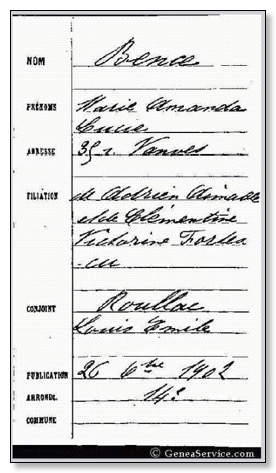 NOM Bence
PRÉNOMS Marie Amanda
Lucie
ADRESSE 35 r. Vanves
FILIATION de Adrien Aimable
et de Clémentine
Victorine
CONJOINT Roullac
Louis Emile
PUBLICATION 26 bre 1902
ARRONDt. 14e
COMMUNE
© GeneaService.com